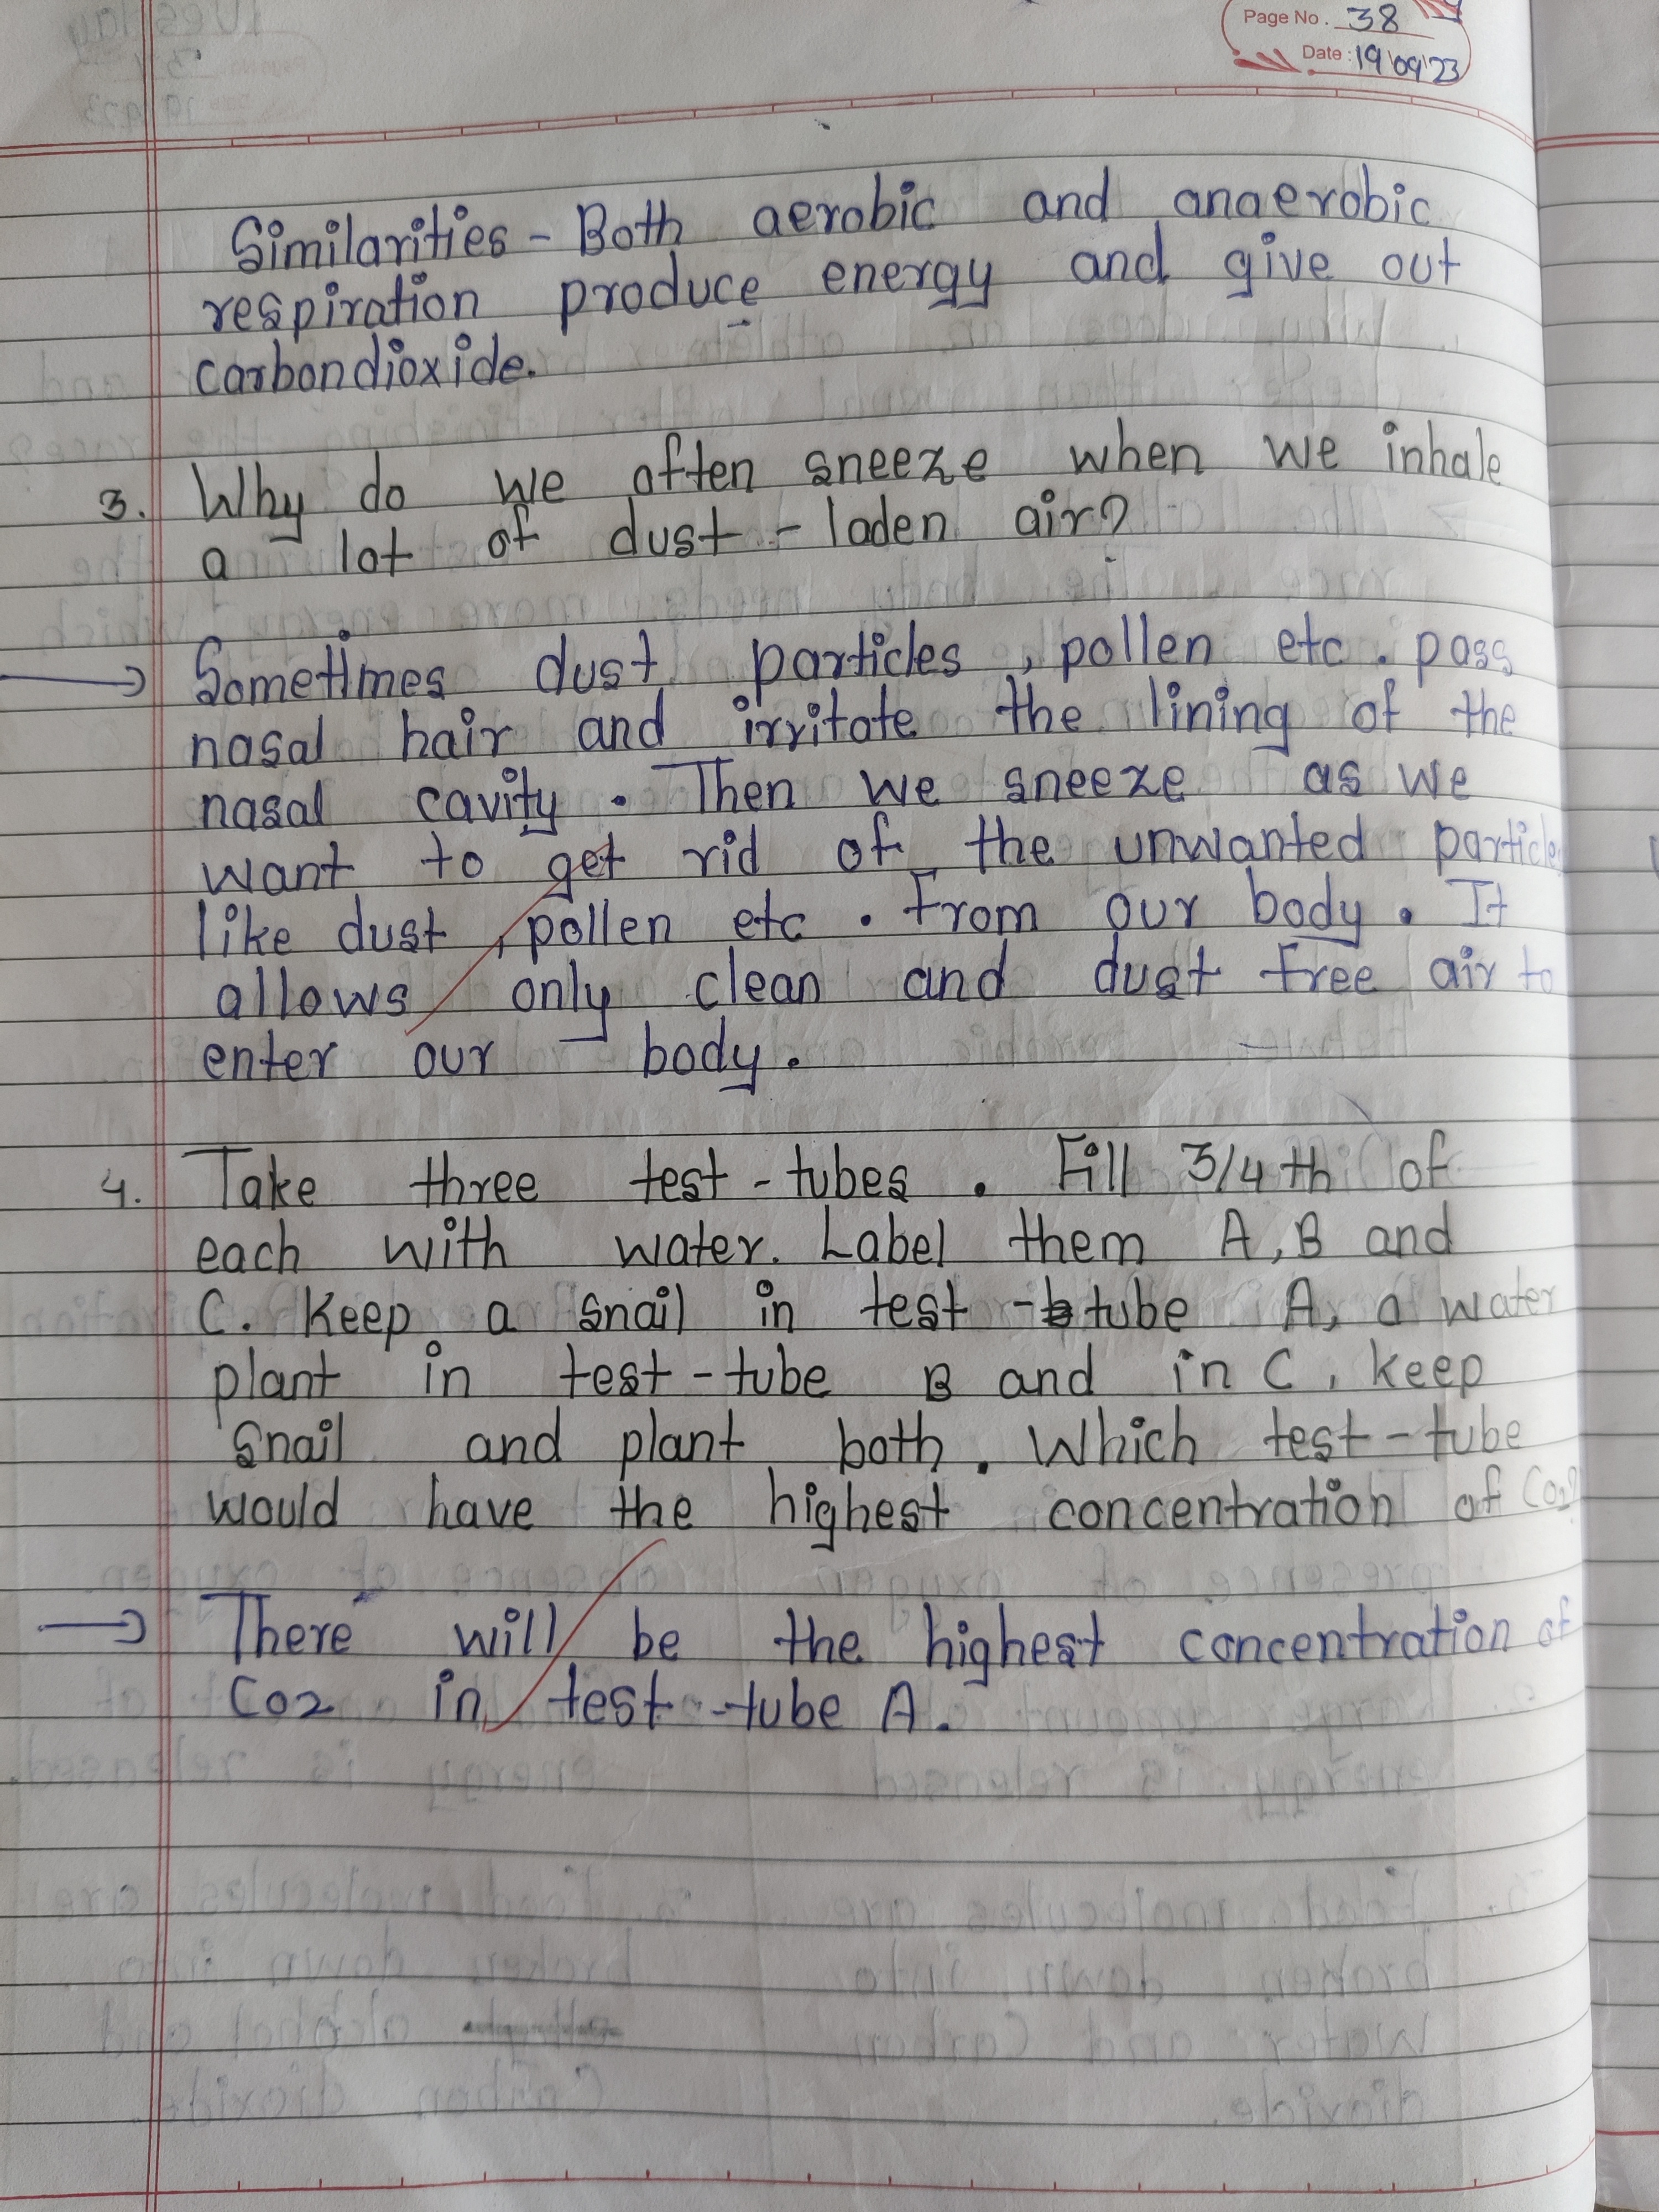 Page No. 38
Date: 19/09/23
Similarities - Both aerobic and anaerobic
respiration produce energy and give out
carbondioxide.
3. Why do we often sneeze when we inhale
a lot of dust - laden air?
→ Sometimes dust particles, pollen etc. pass
nasal hair and irritate the lining of the
nasal cavity. Then we sneeze as we
want to get rid of the unwanted particle
like dust, pollen etc. From our body. It
allows only clean and dust free air to
enter our body.
4. Take three test-tubes. Fill 3/4 th of
each with water. Label them A, B and
C. Keep a snail in test - tube A, a water
plant in test-tube B and in C, keep
snail and plant both. Which test-tube
would have the highest concentration of CO2?
→ There will be the highest concentration of
CO2 in test-tube A.